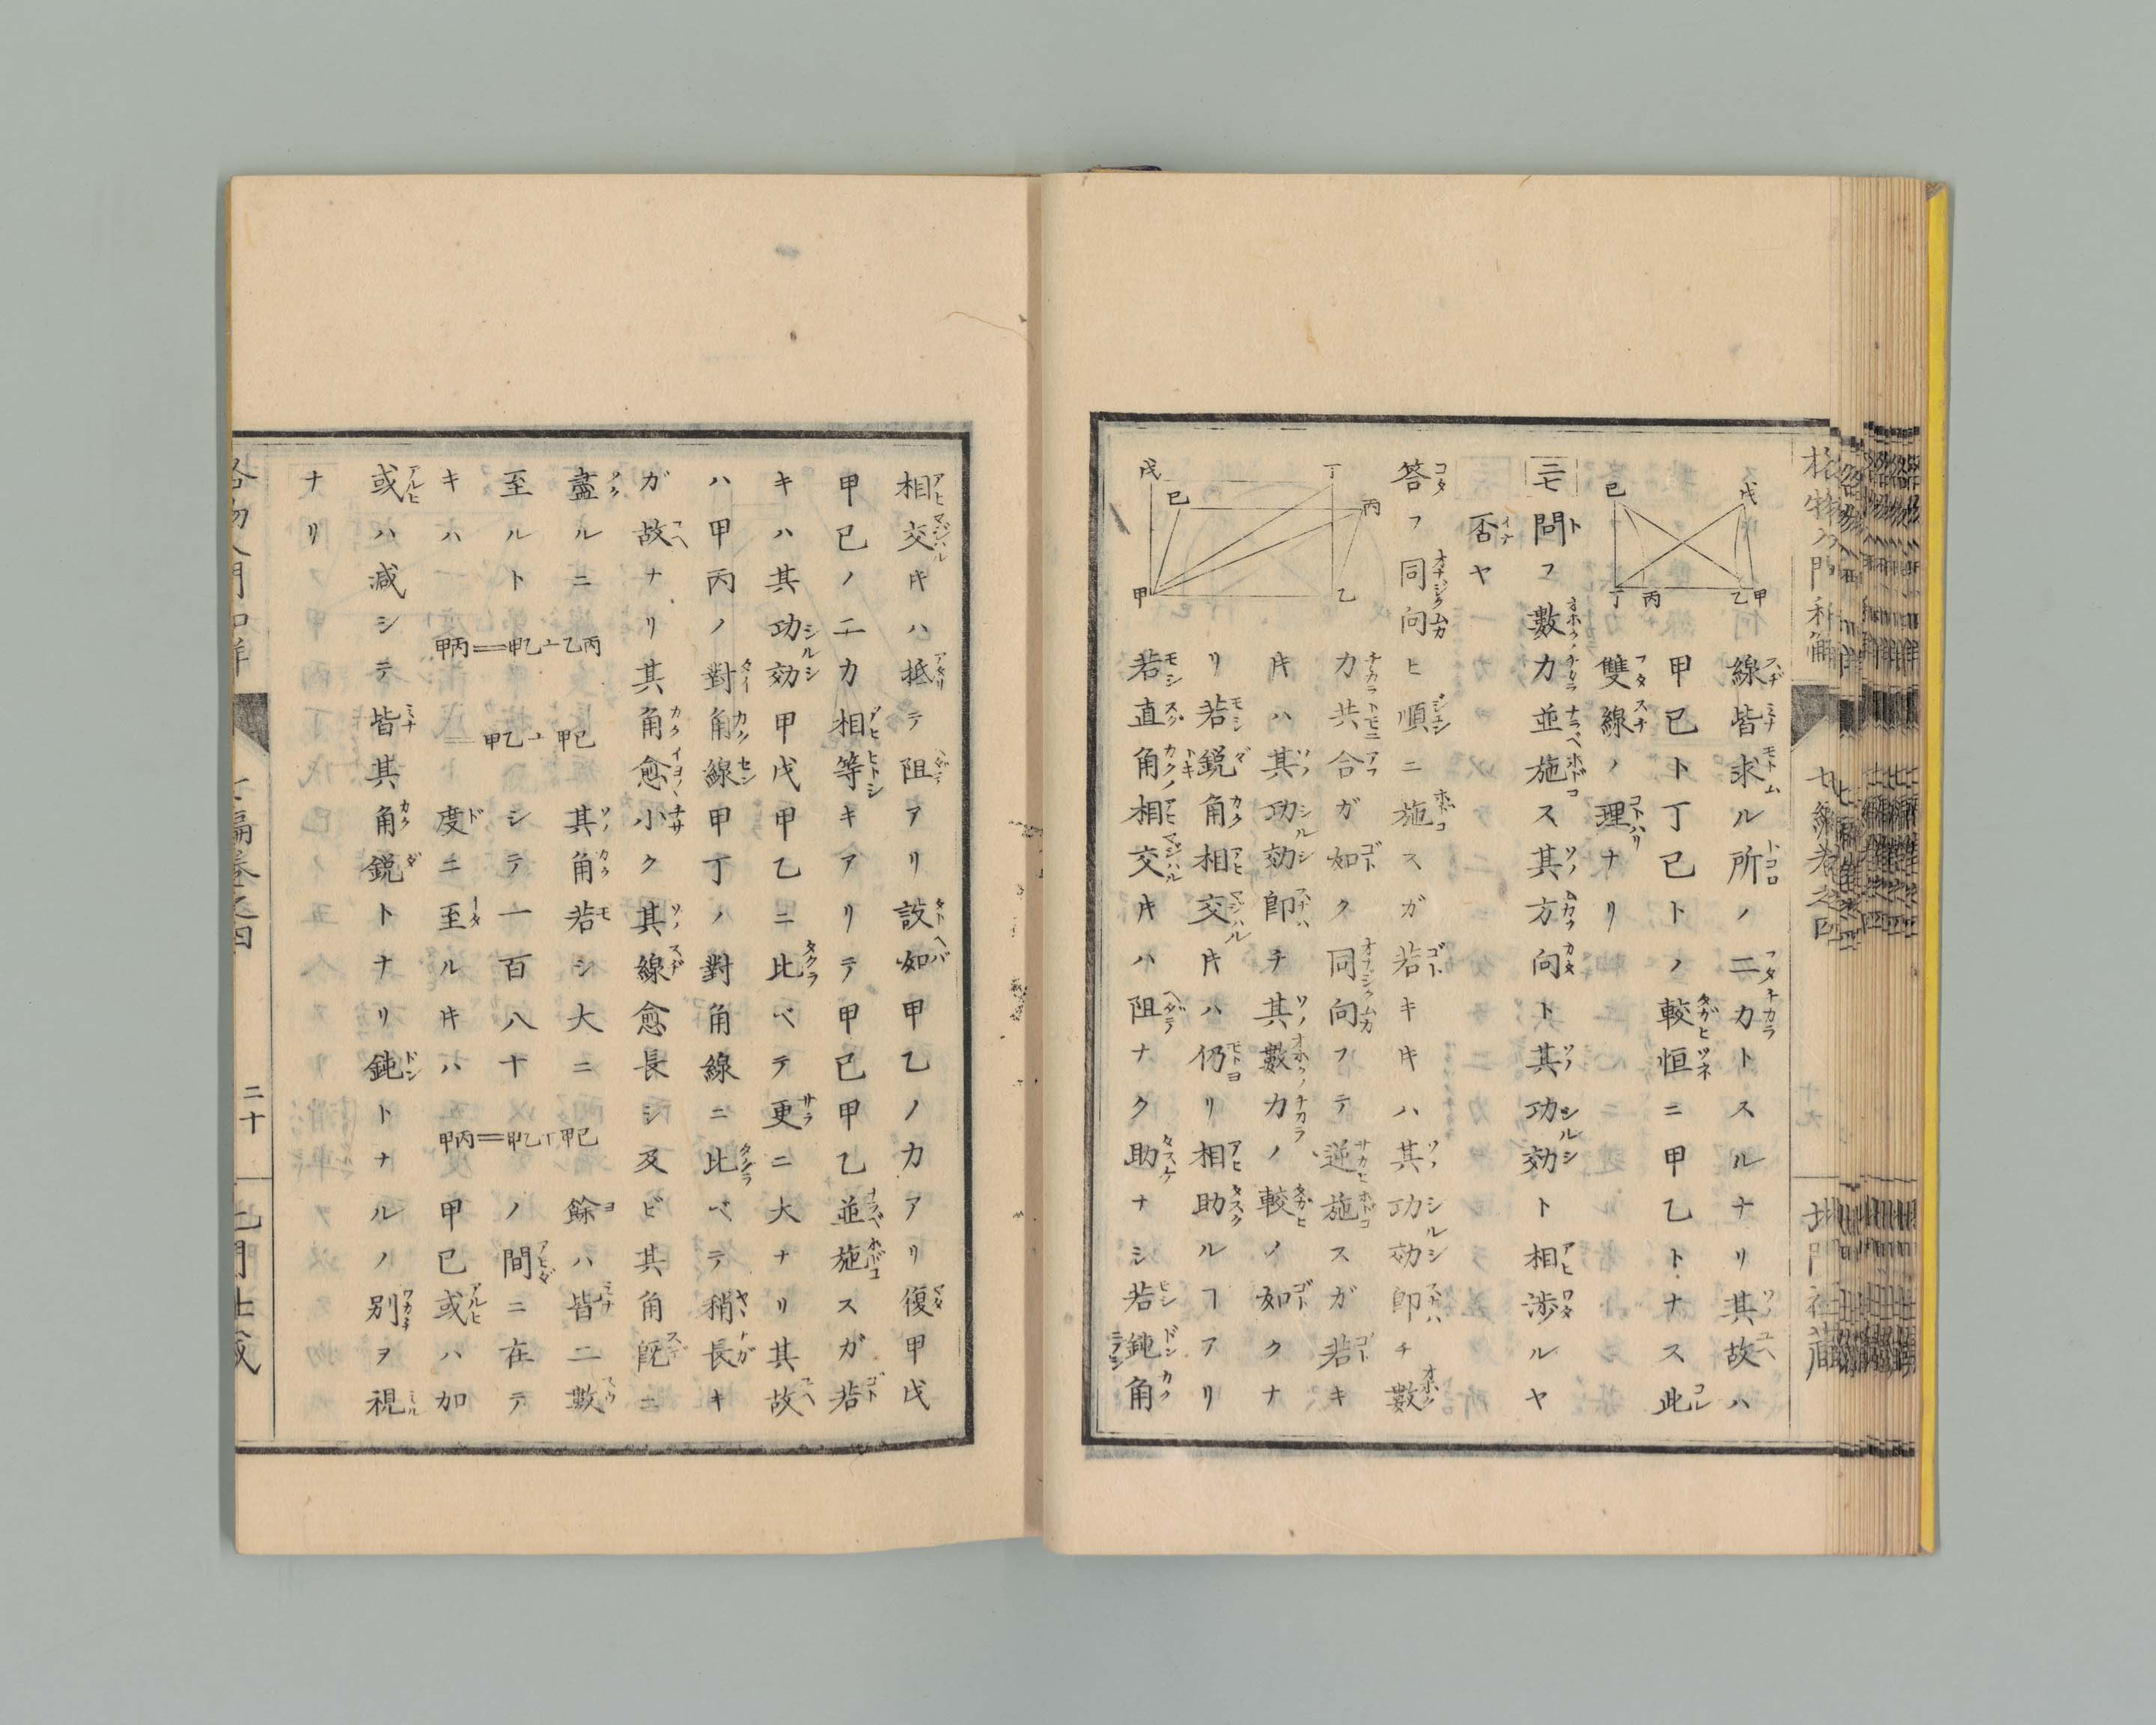 線皆求ル所ノ二力トスルナリ其故ハ
甲己ト丁己トノ較恒ニ甲乙トナス此
雙線ノ理ナリ
戊
己
丁
丙
乙
甲
二七 問フ數力並施ス其方向ト其功効ト相渉ルヤ
否ヤ
答フ同向ヒ順ニ施スガ若キ𪜈ハ其功効即チ數
力共合ガ如ク同向フテ逆施スガ若キ
𪜈ハ其功効即チ其數力ノ較ノ如クナ
リ若鋭角相交𪜈ハ仍リ相助ルヿアリ
若直角相交𪜈ハ阻ナク助ナシ若鈍角
戊
己
丁
丙
甲
乙
相交𪜈ハ抵テ阻アリ設如甲乙ノ力アリ復甲戊
甲己ノ二力相等キアリテ甲己甲乙並施スガ若
キハ其功効甲戊甲乙ニ比ベテ更ニ大ナリ其故
ハ甲丙ノ對角線甲丁ノ對角線ニ比ベテ稍長キ
ガ故ナリ其角愈小ク其線愈長シ及ビ其角既ニ
盡ルニ 甲丙=甲乙⊥乙丙 其角若シ大ニ 餘ハ皆二數
至ルト =甲乙⊥甲己 シテ一百八十ノ間ニ在テ
キハ 度ニ至ル𪜈ハ 甲丙=甲乙丅甲己 甲己或ハ加
或ハ減シテ皆其角鋭トナリ鈍トナルノ別ヲ視
ナリ
七編巻之四
二十